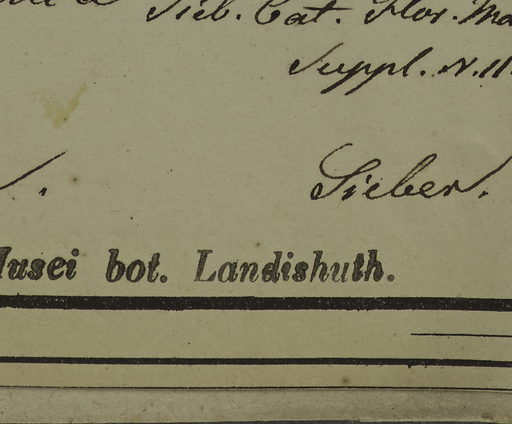 Sieb. Cat. Flor. Ma
Suppl. N. 11
Sieber.
Musei bot. Landishuth.